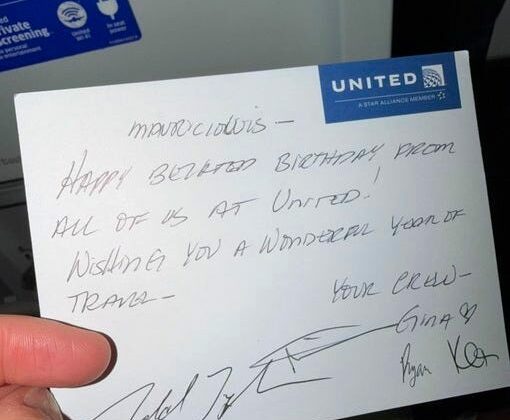 ed
rivate
screening.
personal
entertainment.
United
Wi-Fi
In seat
power
UNITED
A STAR ALLIANCE MEMBER
MAURICIO LUIS —
HAPPY BELATED BIRTHDAY FROM
ALL OF US AT UNITED!
WISHING YOU A WONDERFUL YEAR OF
TRAVEL —
YOUR CREW —
GINA ♡
Ryan